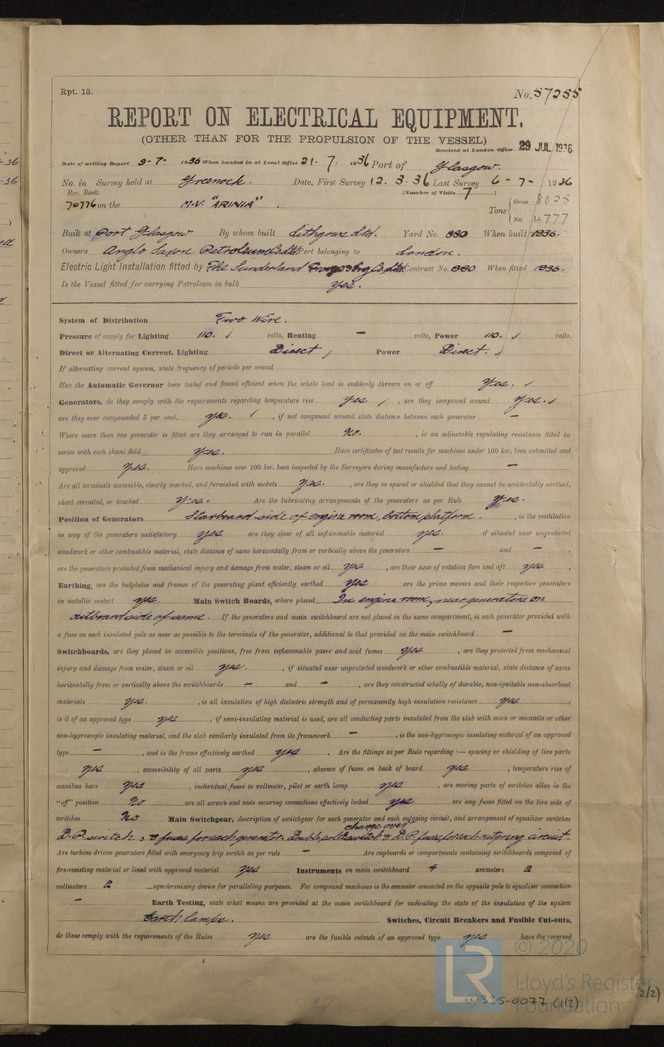 Rpt. 13.
No. 57255
REPORT ON ELECTRICAL EQUIPMENT.
(OTHER THAN FOR THE PROPULSION OF THE VESSEL)
Received at London Office 29 JUL 1936
Date of writing Report 9-7- 1936 When handed in at Local Office 21. 7. 1936 Port of Glasgow.
No. in Survey held at Greenock. Date, First Survey 12. 3. 36 Last Survey 6-7- 1936
Reg. Book. (Number of Visits 7)
70776 on the M.V. "ARINIA". Tons Gross 8025
Net 4777
Built at Port Glasgow By whom built Lithgows Ltd. Yard No. 880 When built 1936.
Owners Anglo Saxon Petroleum Co Ltd Port belonging to London.
Electric Light Installation fitted by The Sunderland Forge & Eng Co Ltd. Contract No. 880 When fitted 1936.
Is the Vessel fitted for carrying Petroleum in bulk Yes.
System of Distribution Two Wire.
Pressure of supply for Lighting 110. volts, Heating — volts, Power 110. volts.
Direct or Alternating Current, Lighting Direct Power Direct.
If alternating current system, state frequency of periods per second
Has the Automatic Governor been tested and found efficient when the whole load is suddenly thrown on or off Yes.
Generators, do they comply with the requirements regarding temperature rise yes, are they compound wound yes.
are they over compounded 5 per cent. yes., if not compound wound state distance between each generator —
Where more than one generator is fitted are they arranged to run in parallel No., is an adjustable regulating resistance fitted in
series with each shunt field yes. Have certificates of test results for machines under 100 kw. been submitted and
approved yes. Have machines over 100 kw. been inspected by the Surveyors during manufacture and testing —
Are all terminals accessible, clearly marked, and furnished with sockets yes., are they so spaced or shielded that they cannot be accidentally earthed,
short circuited, or touched yes. Are the lubricating arrangements of the generators as per Rule yes.
Position of Generators Starboard side of engine room, bottom platform., is the ventilation
in way of the generators satisfactory yes are they clear of all inflammable material yes. if situated near unprotected
woodwork or other combustible material, state distance of same horizontally from or vertically above the generators — and —
are the generators protected from mechanical injury and damage from water, steam or oil yes, are their axes of rotation fore and aft yes
Earthing, are the bedplates and frames of the generating plant efficiently earthed yes are the prime movers and their respective generators
in metallic contact yes. Main Switch Boards, where placed In engine room, near generators on
outboard side of same. If the generators and main switchboard are not placed in the same compartment, is each generator provided with
a fuse on each insulated pole as near as possible to the terminals of the generator, additional to that provided on the main switchboard —
Switchboards, are they placed in accessible positions, free from inflammable gases and acid fumes yes, are they protected from mechanical
injury and damage from water, steam or oil yes., if situated near unprotected woodwork or other combustible material, state distance of same
horizontally from or vertically above the switchboards — and —, are they constructed wholly of durable, non-ignitable non-absorbent
materials yes., is all insulation of high dielectric strength and of permanently high insulation resistance yes
is it of an approved type yes, if semi-insulating material is used, are all conducting parts insulated from the slab with mica or micanite or other
non-hygroscopic insulating material, and the slab similarly insulated from its framework —, is the non-hygroscopic insulating material of an approved
type —, and is the frame effectively earthed yes. Are the fittings as per Rule regarding :— spacing or shielding of live parts
yes, accessibility of all parts yes, absence of fuses on back of board yes, temperature rise of
omnibus bars yes, individual fuses to voltmeter, pilot or earth lamp yes, are moving parts of switches alive in the
"off" position No are all screws and nuts securing connections effectively locked yes are any fuses fitted on the live side of
switches No Main Switchgear, description of switchgear for each generator and each outgoing circuit, and arrangement of equalizer switches
D.P. switch & fuses for each generator. Double pole change over switch & D.P. fuses for each outgoing circuit
Are turbine driven generators fitted with emergency trip switch as per rule — Are cupboards or compartments containing switchboards composed of
fire-resisting material or lined with approved material yes Instruments on main switchboard 4 ammeters 2
voltmeters 2 synchronising device for paralleling purposes. For compound machines is the ammeter connected on the opposite pole to equaliser connection
— Earth Testing, state what means are provided at the main switchboard for indicating the state of the insulation of the system
Earth lamps. Switches, Circuit Breakers and Fusible Cut-outs,
do these comply with the requirements of the Rules yes are the fusible cutouts of an approved type yes have the reversed
© 2020
LR
Lloyd's Register
Foundation